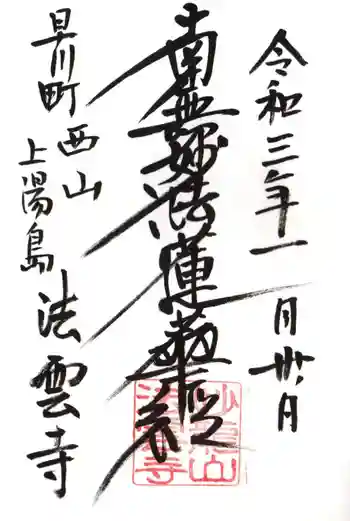 令和三年十一月卅日
南無妙法蓮華経
早川町西山
上湯島
法雲寺